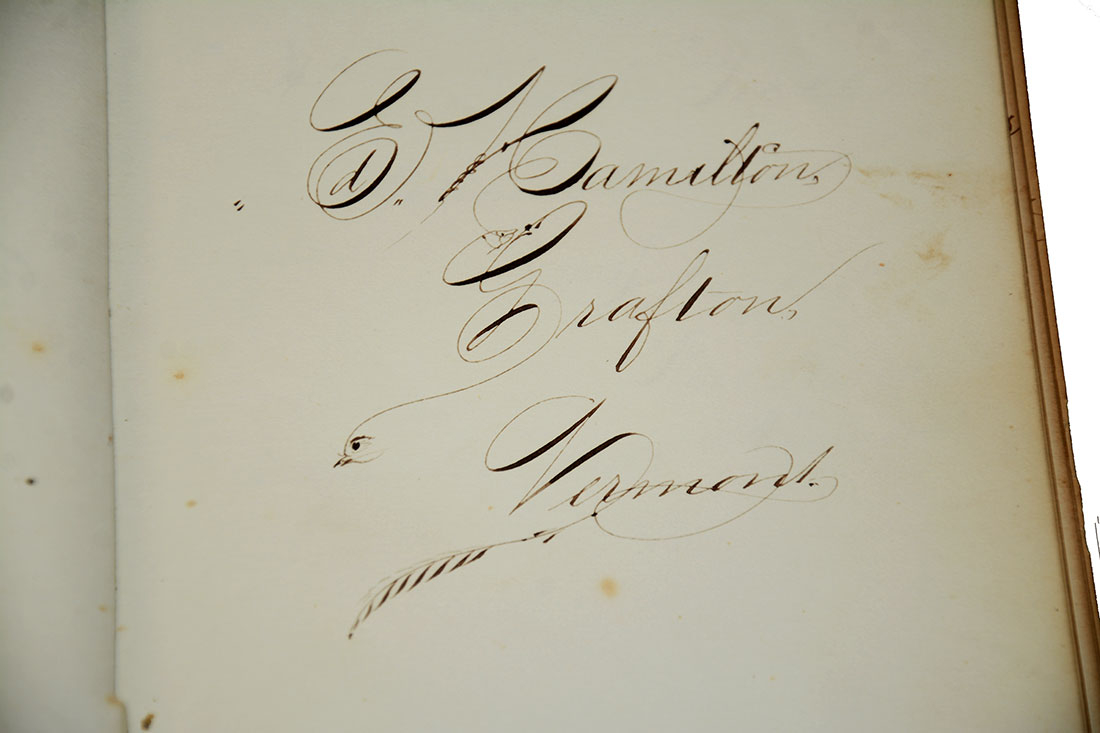 "Ed." Hamilton,
Grafton,
Vermont.